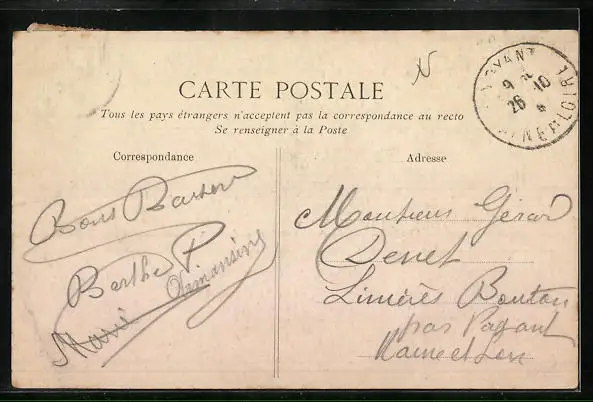 CARTE POSTALE
Tous les pays étrangers n'acceptent pas la correspondance au recto
Se renseigner à la Poste
Correspondance
Adresse
N
9
26 10
NE & LOIRE
Bons Baisers
Berthe P
Marie
Monsieur Gérard
Denet
Linières Bouton
par Parçant
Maine et Loire